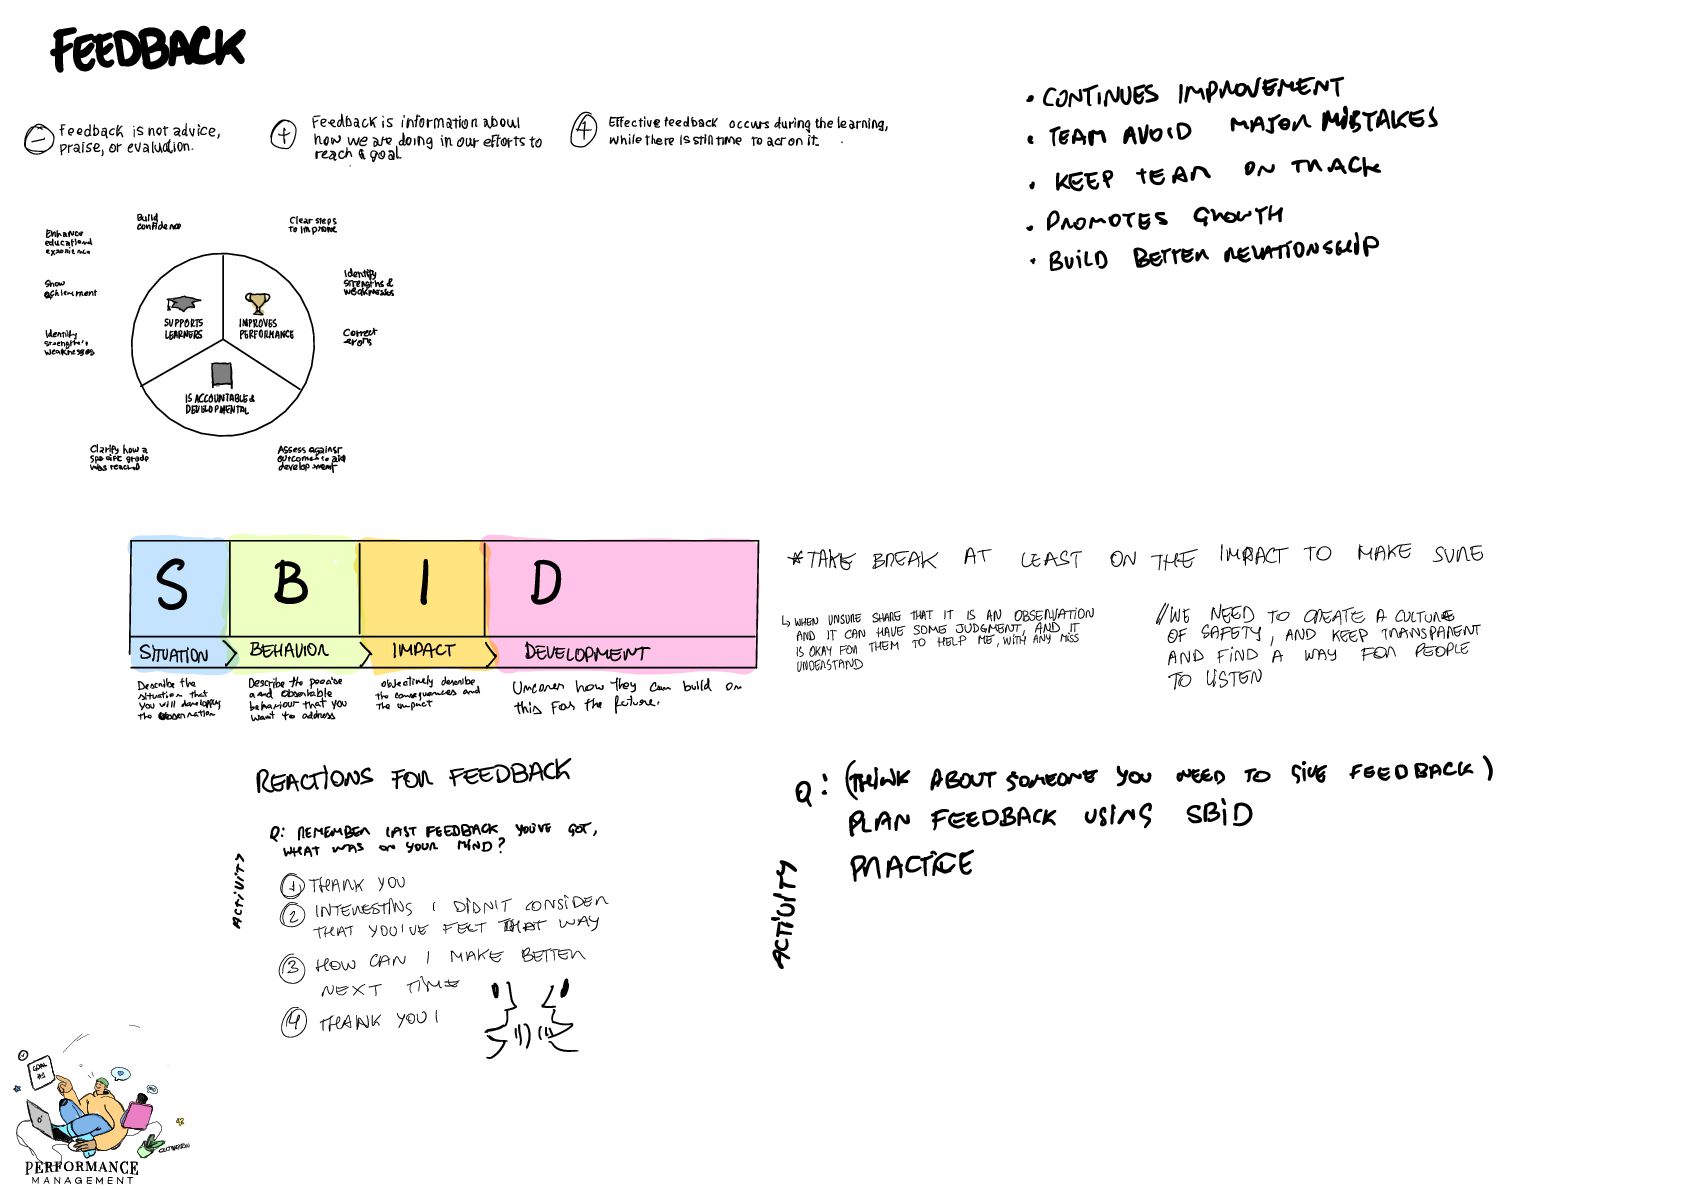 FEEDBACK
Feedback is not advice,
praise, or evaluation.
Feedback is information about
how we are doing in our efforts to
reach a goal.
4
Effective feedback occurs during the learning,
while there is still time to act on it.
• CONTINUES IMPROVEMENT
• TEAM AVOID MAJOR MISTAKES
• KEEP TEAM ON TRACK
• PROMOTES GROWTH
• BUILD BETTER RELATIONSHIP
Build
confidence
Clear steps
to improve
Enhance
educational
Show
achievement
Identify
weaknesses
Identify
strengths &
weaknesses
Correct
SUPPORTS
LEARNERS
IMPROVES
PERFORMANCE
IS ACCOUNTABLE &
DEVELOPMENTAL
Clarify how a
specific grade
was reached
Assess against
outcomes to aid
development
S B I D
SITUATION BEHAVIOR IMPACT DEVELOPMENT
Describe the
situation that
you will
the
Describe the
and observable
behaviour that you
want to address
objectively describe
the consequences and
the impact
Uncover how they can build on
this for the future.
*TAKE BREAK AT LEAST ON THE IMPACT TO MAKE SURE
↳ WHEN UNSURE SHARE THAT IT IS AN OBSERVATION
AND IT CAN HAVE SOME JUDGMENT, AND IT
IS OKAY FOR THEM TO HELP ME, WITH ANY MISS
UNDERSTAND
//WE NEED TO CREATE A CULTURE
OF SAFETY, AND KEEP TRANSPARENT
AND FIND A WAY FOR PEOPLE
TO LISTEN
REACTIONS FOR FEEDBACK
ACTIVITY
Q: REMEMBER LAST FEEDBACK YOU'VE GOT,
WHAT WAS ON YOUR MIND?
1 THANK YOU
2 INTERESTING I DIDN'T CONSIDER
THAT YOU'VE FELT THAT WAY
3 HOW CAN I MAKE BETTER
NEXT TIME
4 THANK YOU!
ACTIVITY
Q: (THINK ABOUT SOMEONE YOU NEED TO GIVE FEEDBACK)
PLAN FEEDBACK USING SBID
PRACTICE
PERFORMANCE
MANAGEMENT